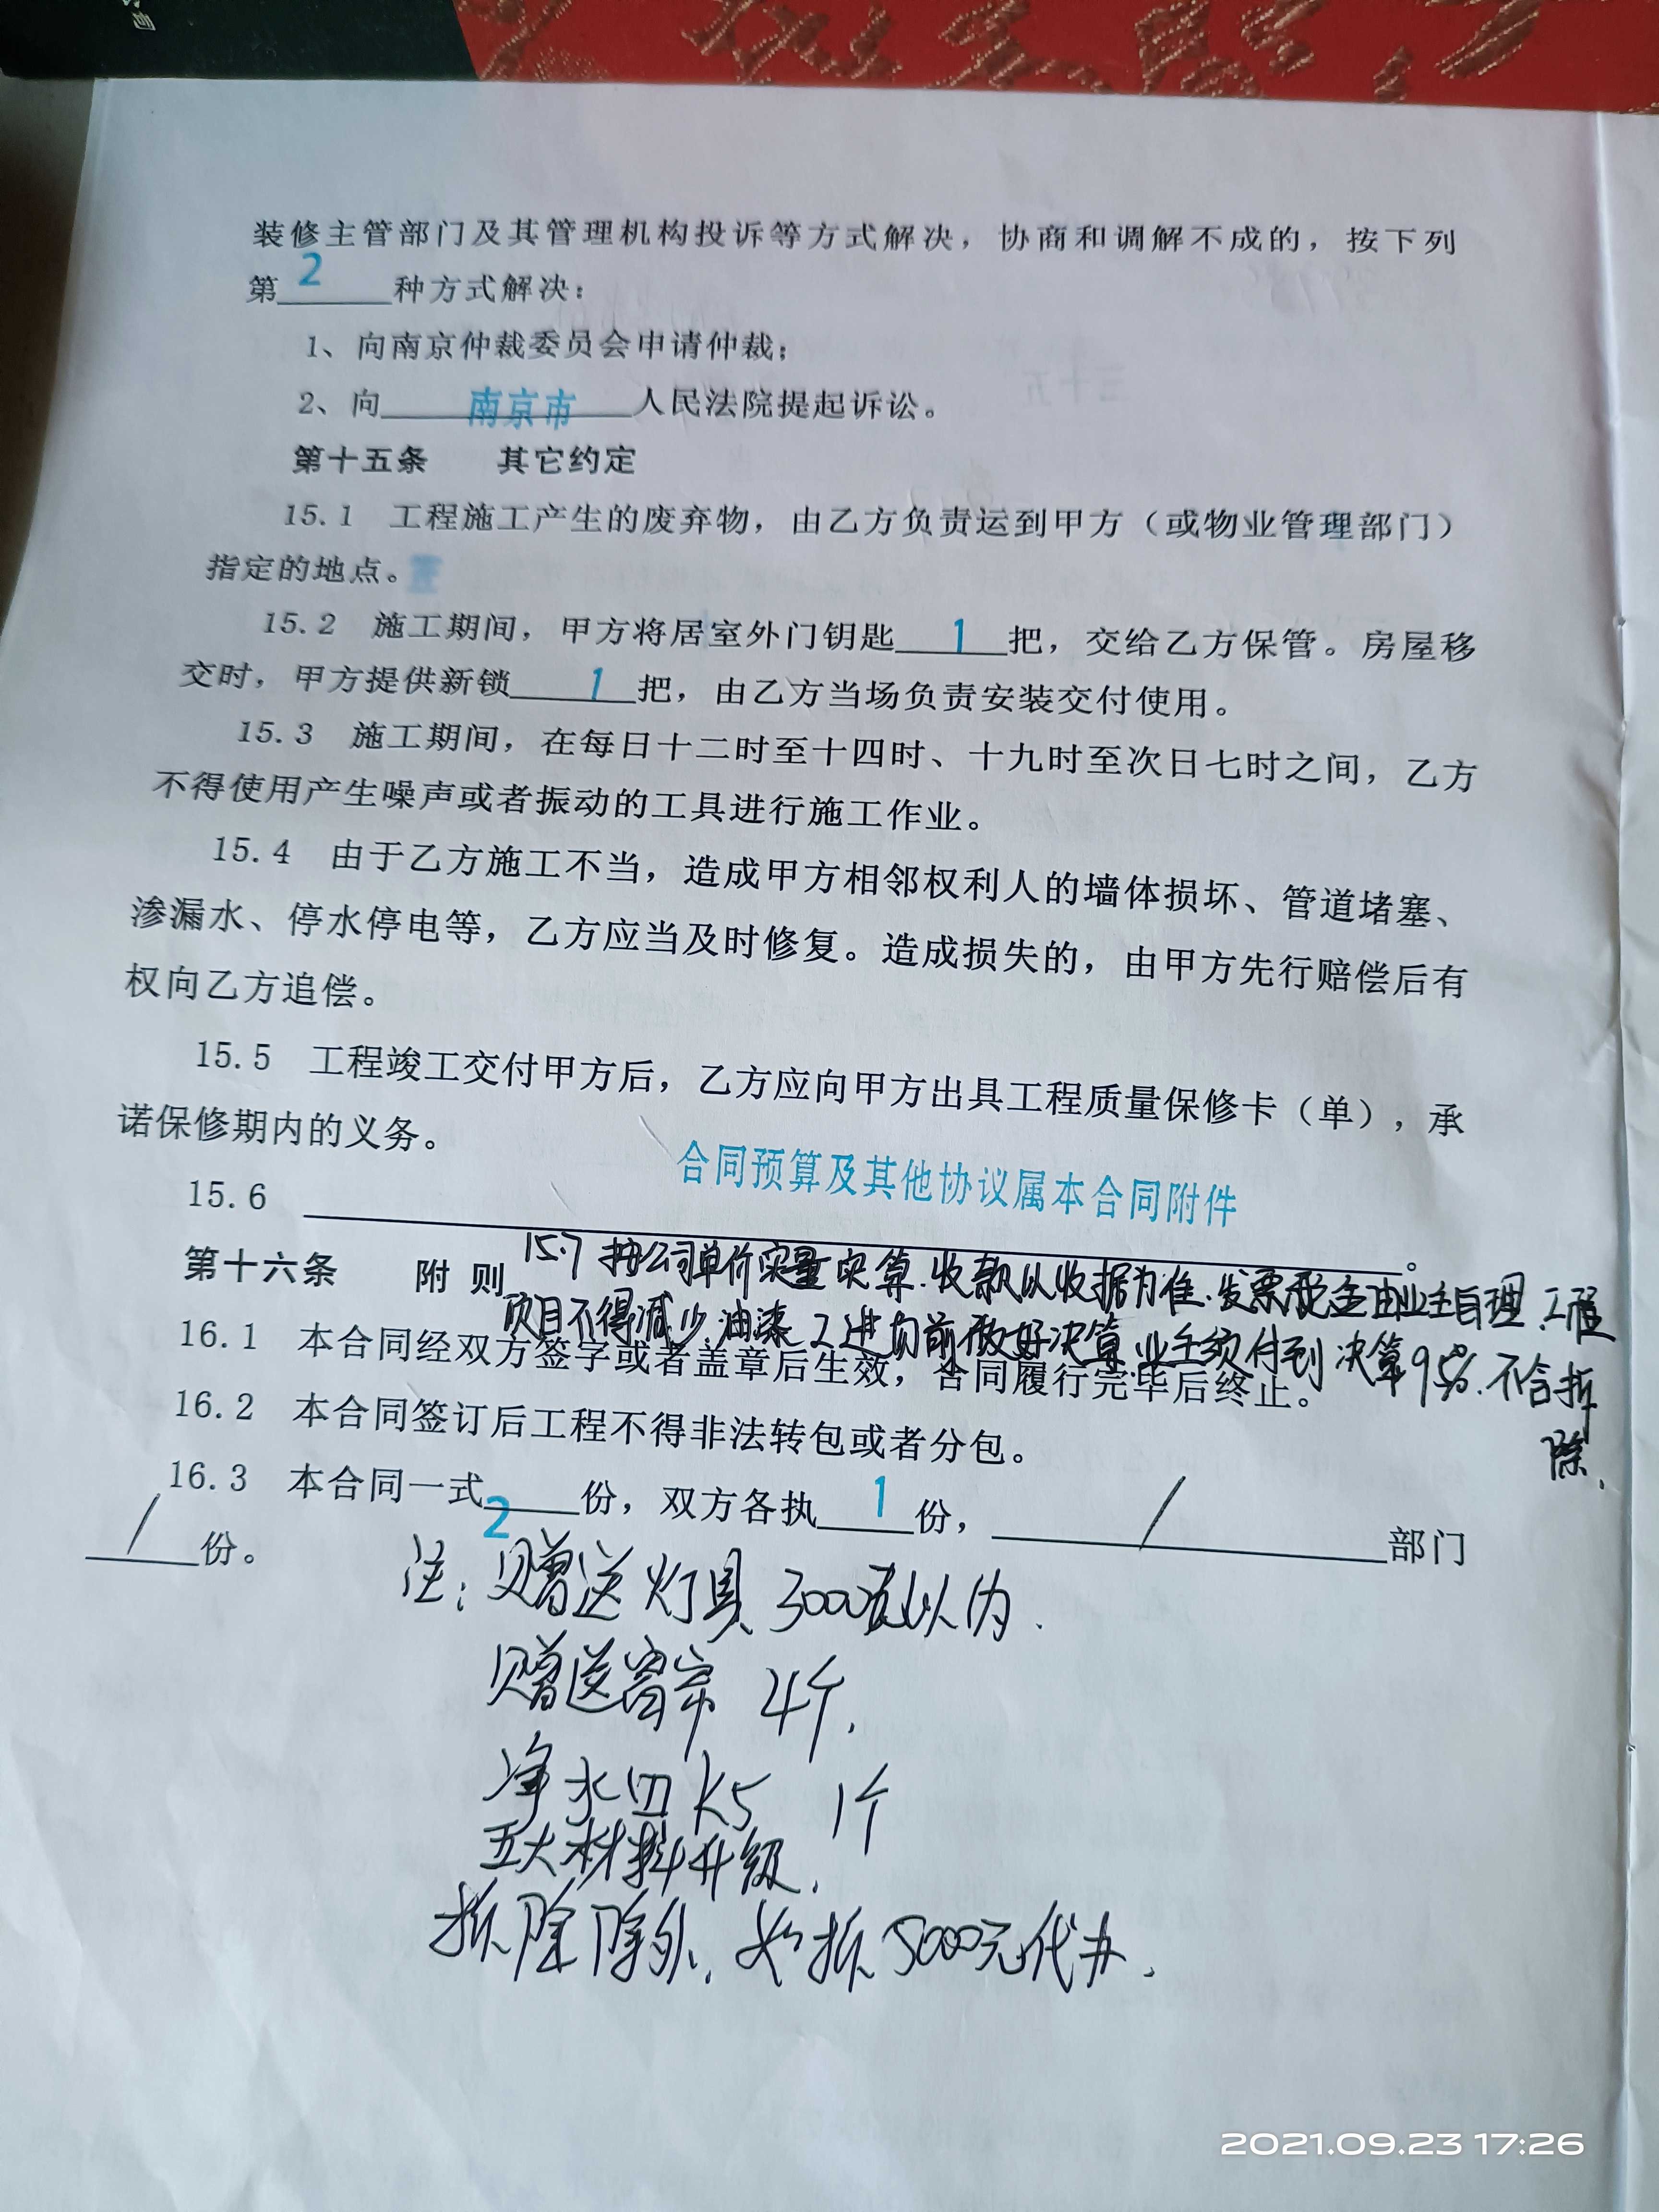 装修主管部门及其管理机构投诉等方式解决，协商和调解不成的，按下列
第2种方式解决：
1、向南京仲裁委员会申请仲裁；
2、向南京市人民法院提起诉讼。
第十五条 其它约定
15.1 工程施工产生的废弃物，由乙方负责运到甲方（或物业管理部门）
指定的地点。
15.2 施工期间，甲方将居室外门钥匙1把，交给乙方保管。房屋移
交时，甲方提供新锁1把，由乙方当场负责安装交付使用。
15.3 施工期间，在每日十二时至十四时、十九时至次日七时之间，乙方
不得使用产生噪声或者振动的工具进行施工作业。
15.4 由于乙方施工不当，造成甲方相邻权利人的墙体损坏、管道堵塞、
渗漏水、停水停电等，乙方应当及时修复。造成损失的，由甲方先行赔偿后有
权向乙方追偿。
15.5 工程竣工交付甲方后，乙方应向甲方出具工程质量保修卡（单），承
诺保修期内的义务。
15.6 合同预算及其他协议属本合同附件。
第十六条 附则
15.7 按公司单价实量决算.收款以收据为准.发票税金由业主自理.工程
项目不得减少.油漆工进场前做好决算.业主须付到决算95%.不含拆
除.
16.1 本合同经双方签字或者盖章后生效，合同履行完毕后终止。
16.2 本合同签订后工程不得非法转包或者分包。
16.3 本合同一式2份，双方各执1份，/部门
/份。
注：赠送灯具3000元以内.
赠送窗帘 4个.
净水 K5 1个
五大材料升级.
拆除除外.如拆5000元代办.
2021.09.23 17:26